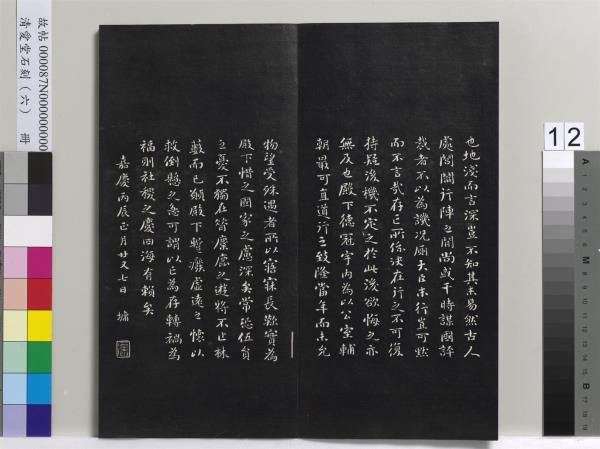 也地淺而言深豈不知其未易然古人
處閭閻行陣之間尚或干時謀國評
裁者不以為譏況廁大臣末行豈可默
而不言哉存亡所係決在行之不可復
待疑後機不定之於此後欲悔之亦
無及也殿下德冠宇內為以公室輔
朝最可直道行之致隆當年而未允
物望受殊遇者所以寤寐長歎實為
殿下惜之國家之慮深矣常恐伍員
之憂不獨在昔麋鹿之遊將不止林
藪而已願殿下暫廢虛遠之懷以
救倒懸之急可謂以亡為存轉禍為
福則社稷之慶四海有賴矣
嘉慶丙辰正月廿又七日 墉
故帖 000087N000000000
清愛堂石刻（六） 冊
12